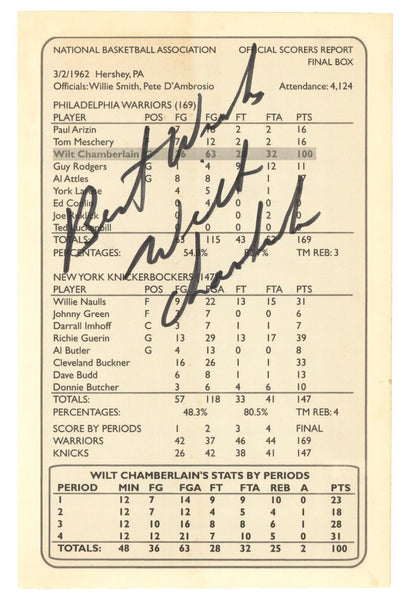 NATIONAL BASKETBALL ASSOCIATION OFFICIAL SCORERS REPORT
FINAL BOX
3/2/1962 Hershey, PA
Officials: Willie Smith, Pete D'Ambrosio Attendance: 4,124
PHILADELPHIA WARRIORS (169)
PLAYER POS FG FGA FT FTA PTS
Paul Arizin F 7 2 2 16
Tom Meschery F 7 2 2 16
Wilt Chamberlain 63 32 100
Guy Rodgers G 4 9 12 11
Al Attles G 8 8 17
York Larese 4 5
Ed Conlin 0
Joe Ruklick
Ted Luckenbill
TOTALS: 63 115 43 169
PERCENTAGES: TM REB: 3
Best Wishes
Wilt
Chamberlain
NEW YORK KNICKERBOCKERS (147)
PLAYER POS FG FGA FT FTA PTS
Willie Naulls F 9 22 13 15 31
Johnny Green F 3 7 0 0 6
Darrall Imhoff C 3 7 1 1 7
Richie Guerin G 13 29 13 17 39
Al Butler G 4 13 0 0 8
Cleveland Buckner 16 26 1 1 33
Dave Budd 6 8 1 1 13
Donnie Butcher 3 6 4 6 10
TOTALS: 57 118 33 41 147
PERCENTAGES: 48.3% 80.5% TM REB: 4
SCORE BY PERIODS 1 2 3 4 FINAL
WARRIORS 42 37 46 44 169
KNICKS 26 42 38 41 147
WILT CHAMBERLAIN'S STATS BY PERIODS
PERIOD MIN FG FGA FT FTA REB A PTS
1 12 7 14 9 9 10 0 23
2 12 7 12 4 5 4 1 18
3 12 10 16 8 8 6 1 28
4 12 12 21 7 10 5 0 31
TOTALS: 48 36 63 28 32 25 2 100